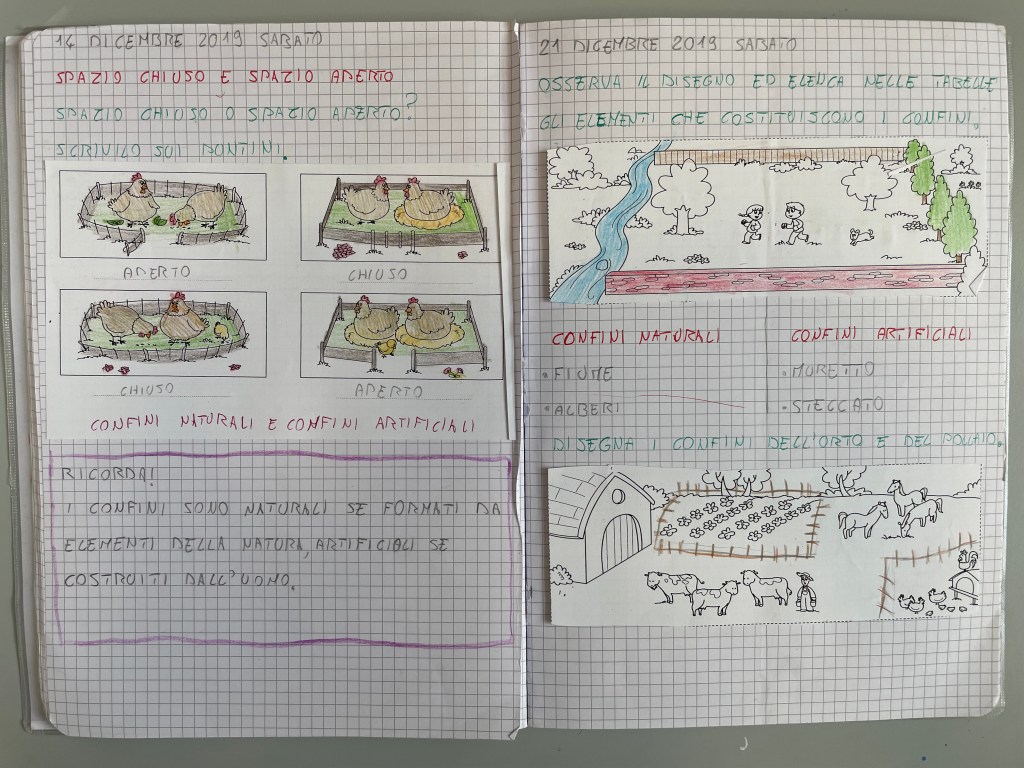 14 DICEMBRE 2019 SABATO
SPAZIO CHIUSO E SPAZIO APERTO
SPAZIO CHIUSO O SPAZIO APERTO?
SCRIVILO SUI PUNTINI.
APERTO
CHIUSO
CHIUSO
APERTO
CONFINI NATURALI E CONFINI ARTIFICIALI
RICORDA!
I CONFINI SONO NATURALI SE FORMATI DA
ELEMENTI DELLA NATURA, ARTIFICIALI SE
COSTRUITI DALL'UOMO.
21 DICEMBRE 2019 SABATO
OSSERVA IL DISEGNO ED ELENCA NELLE TABELLE
GLI ELEMENTI CHE COSTITUISCONO I CONFINI.
CONFINI NATURALI
CONFINI ARTIFICIALI
•FIUME
•MURETTO
•ALBERI
•STECCATO
DISEGNA I CONFINI DELL'ORTO E DEL POLLAIO.